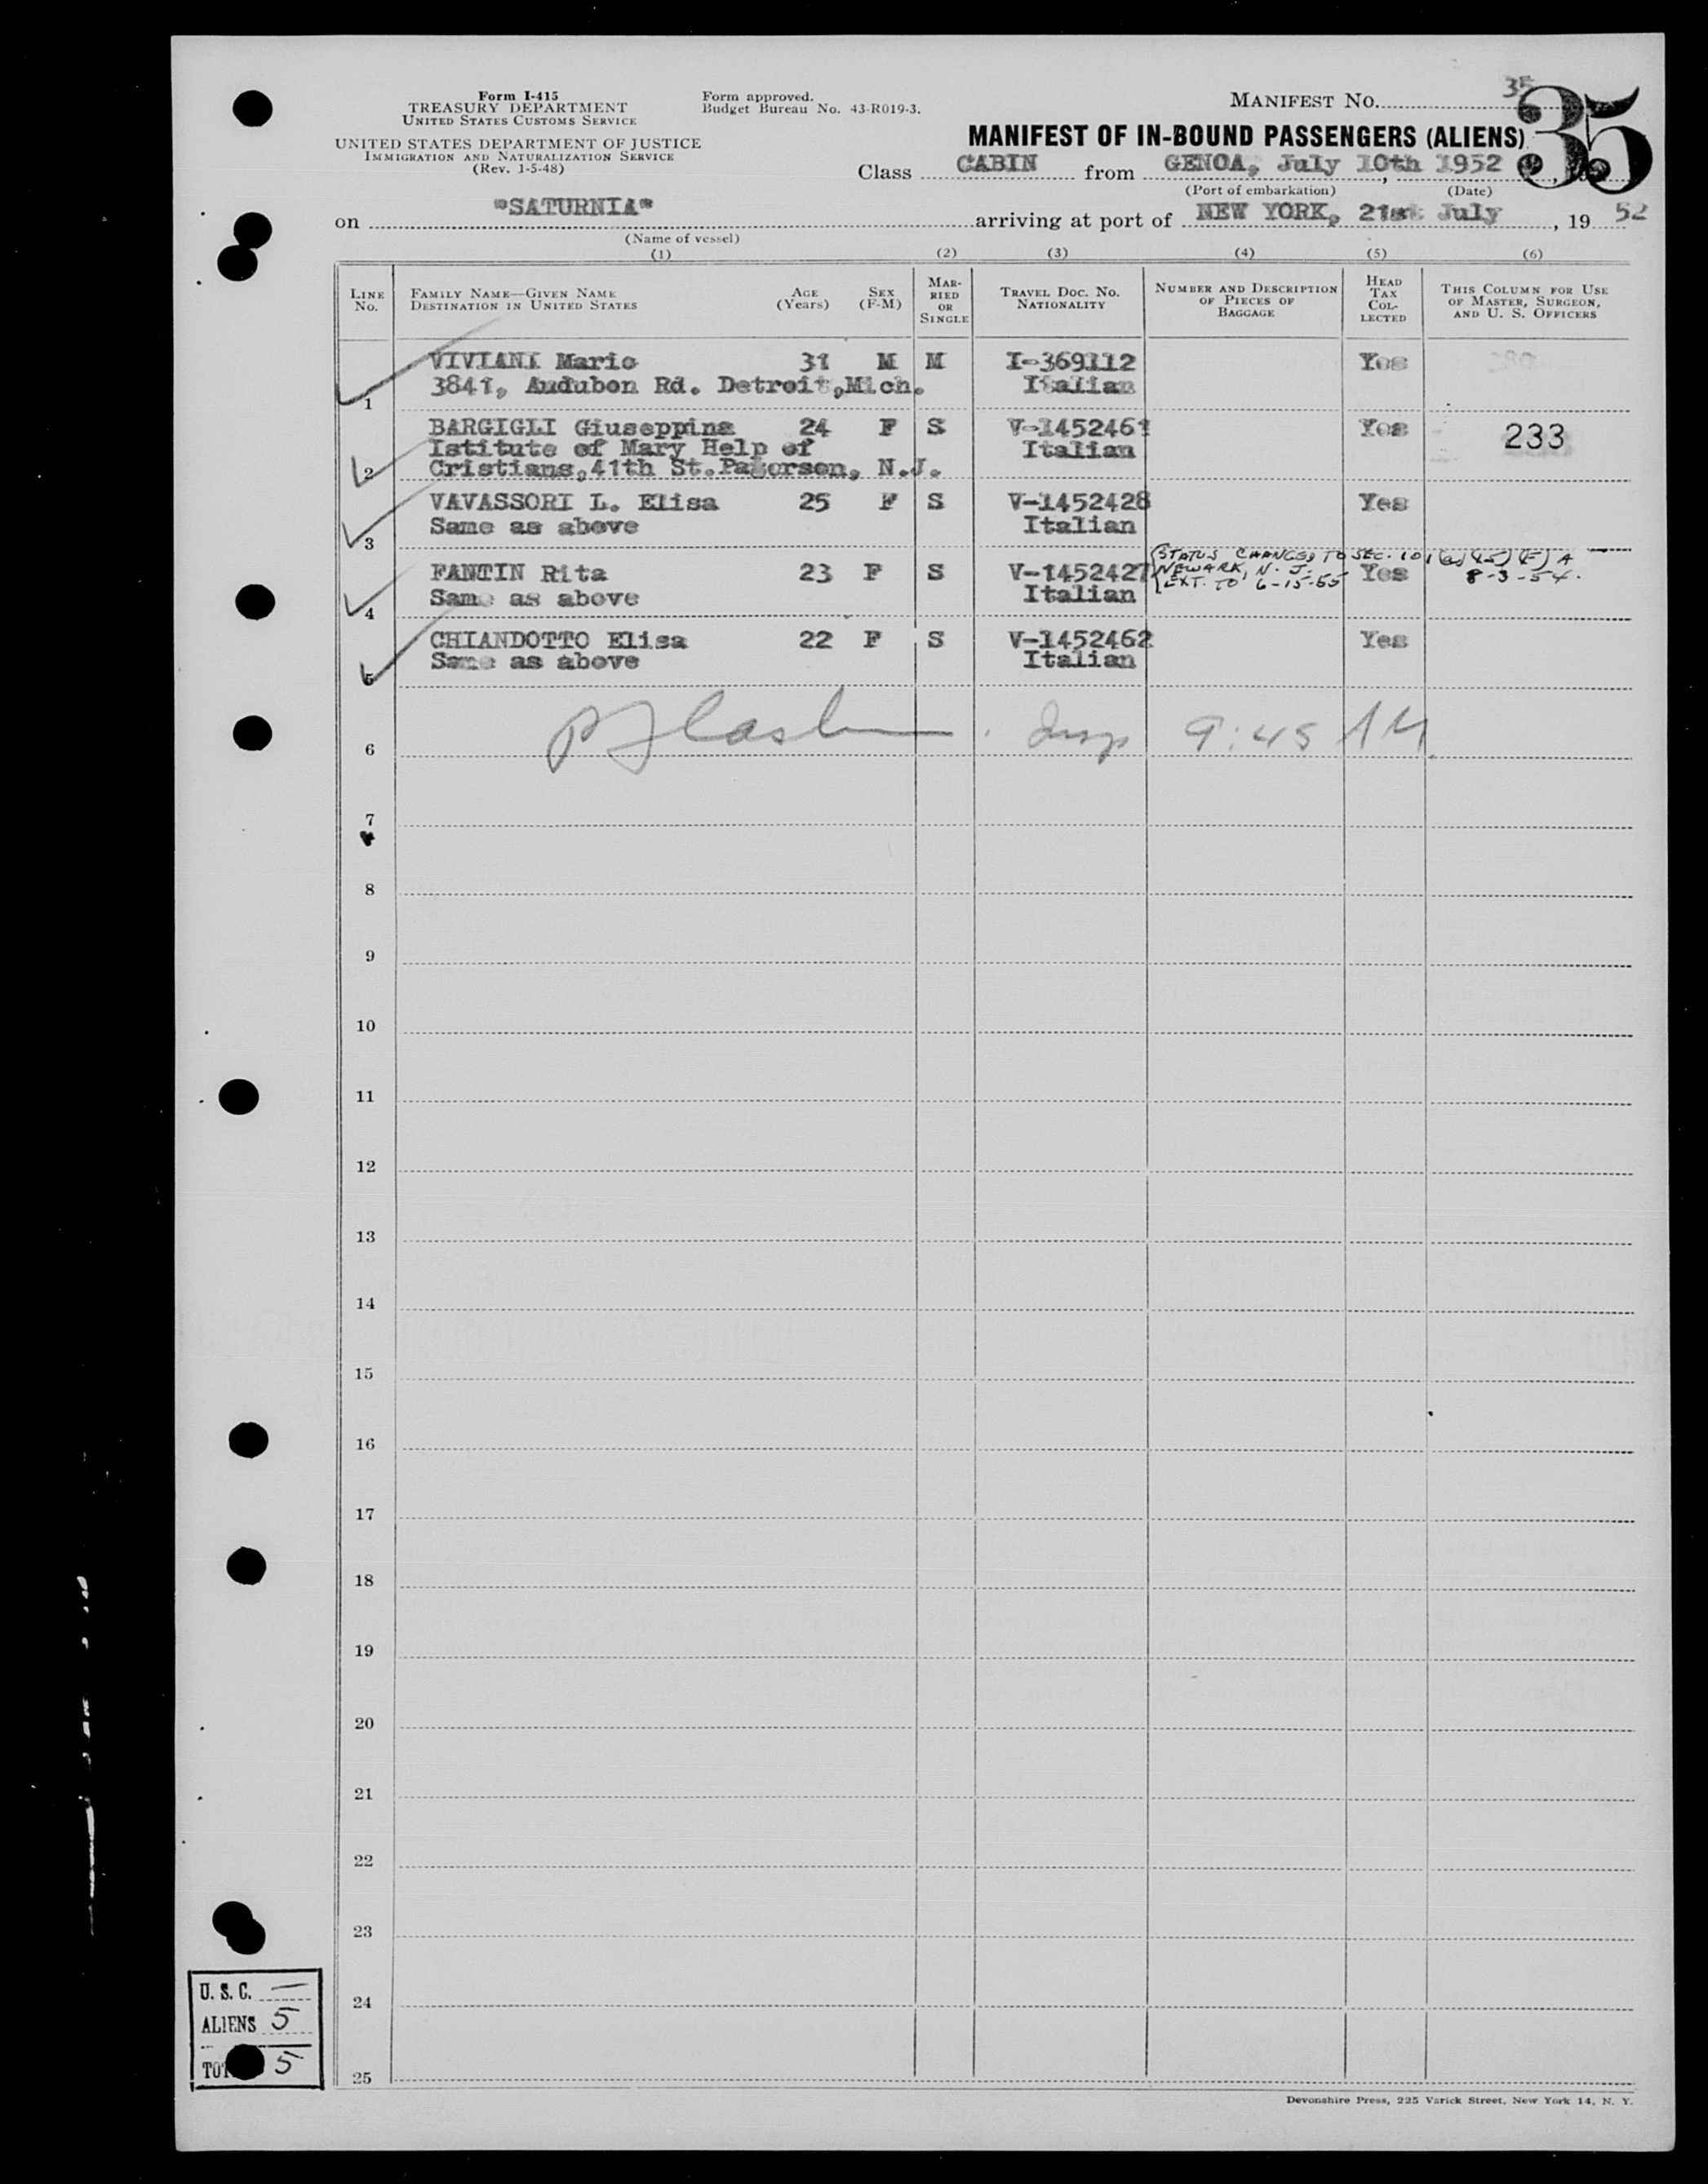 Form I-415
TREASURY DEPARTMENT
UNITED STATES CUSTOMS SERVICE
UNITED STATES DEPARTMENT OF JUSTICE
IMMIGRATION AND NATURALIZATION SERVICE
(Rev. 1-5-48)
Form approved.
Budget Bureau No. 43-R019-3.
MANIFEST NO. 35
35
MANIFEST OF IN-BOUND PASSENGERS (ALIENS)
Class CABIN from GENOA, July 10th 1952
(Port of embarkation) (Date)
on "SATURNIA" arriving at port of NEW YORK, 21st July, 19 52
(Name of vessel)
(1) (2) (3) (4) (5) (6)
LINE NO.
FAMILY NAME—GIVEN NAME
DESTINATION IN UNITED STATES
AGE (Years)
SEX (F-M)
MARRIED OR SINGLE
TRAVEL DOC. NO.
NATIONALITY
NUMBER AND DESCRIPTION OF PIECES OF BAGGAGE
HEAD TAX COLLECTED
THIS COLUMN FOR USE OF MASTER, SURGEON, AND U. S. OFFICERS
VIVIANI Mario 31 M M I-369112 Yes
1 3841, Audubon Rd. Detroit,Mich. Italian
BARGIGLI Giuseppina 24 F S V-1452461 Yes 233
Istitute of Mary Help of Italian
2 Cristians,41th St.Patorson, N.J.
VAVASSORI L. Elisa 25 F S V-1452428 Yes
3 Same as above Italian
STATUS CHANGED TO SEC. 101(a)(15)(F) A
NEWARK, N. J. 8-3-54.
EXT. TO 6-15-55
FANTIN Rita 23 F S V-1452427 Yes
4 Same as above Italian
CHIANDOTTO Elisa 22 F S V-1452462 Yes
5 Same as above Italian
6 Insp 9:45 AM.
7
8
9
10
11
12
13
14
15
16
17
18
19
20
21
22
23
24
25
U. S. C. —
ALIENS 5
5
Devonshire Press, 225 Varick Street, New York 14, N. Y.